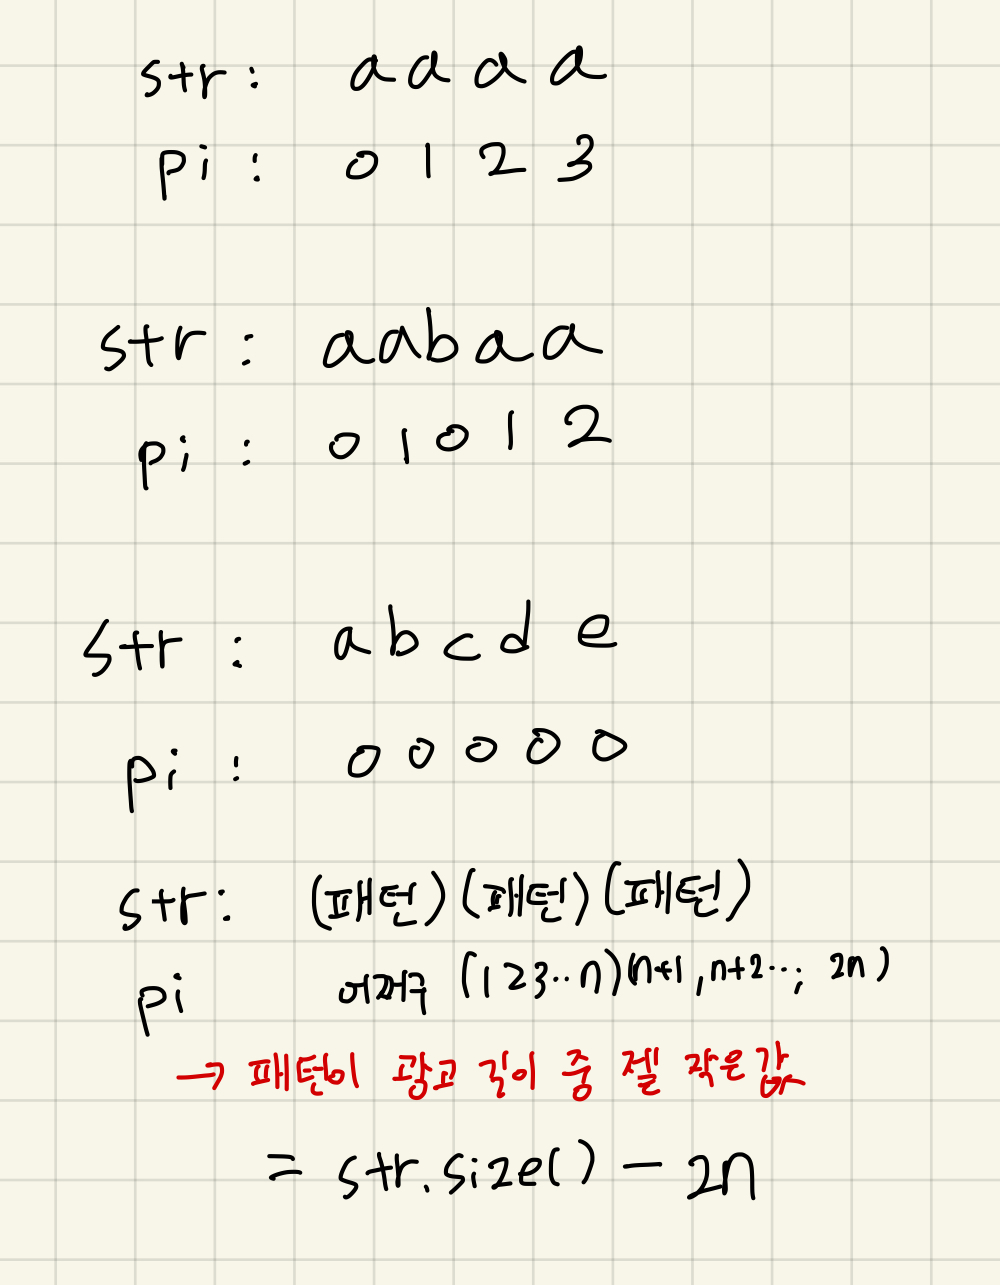 str: a a a a
pi: 0 1 2 3
str: aabaa
pi: 0 1 0 1 2
str: a b c d e
pi: 0 0 0 0 0
str: (패턴)(패턴)(패턴)
pi 어쩌구 (1 2 3·· n)(n+1, n+2···; 2n)
→ 패턴이 광고 길이 중 젤 작은값
= str.size() - 2n